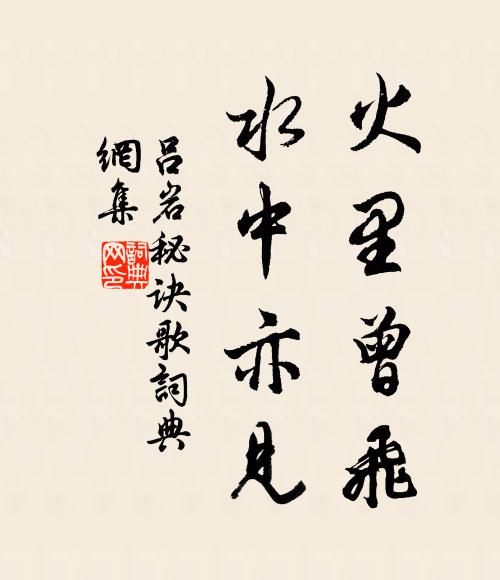 火里曾飛
水中亦見
呂岩秘訣歌詞典
網集
詞典網印